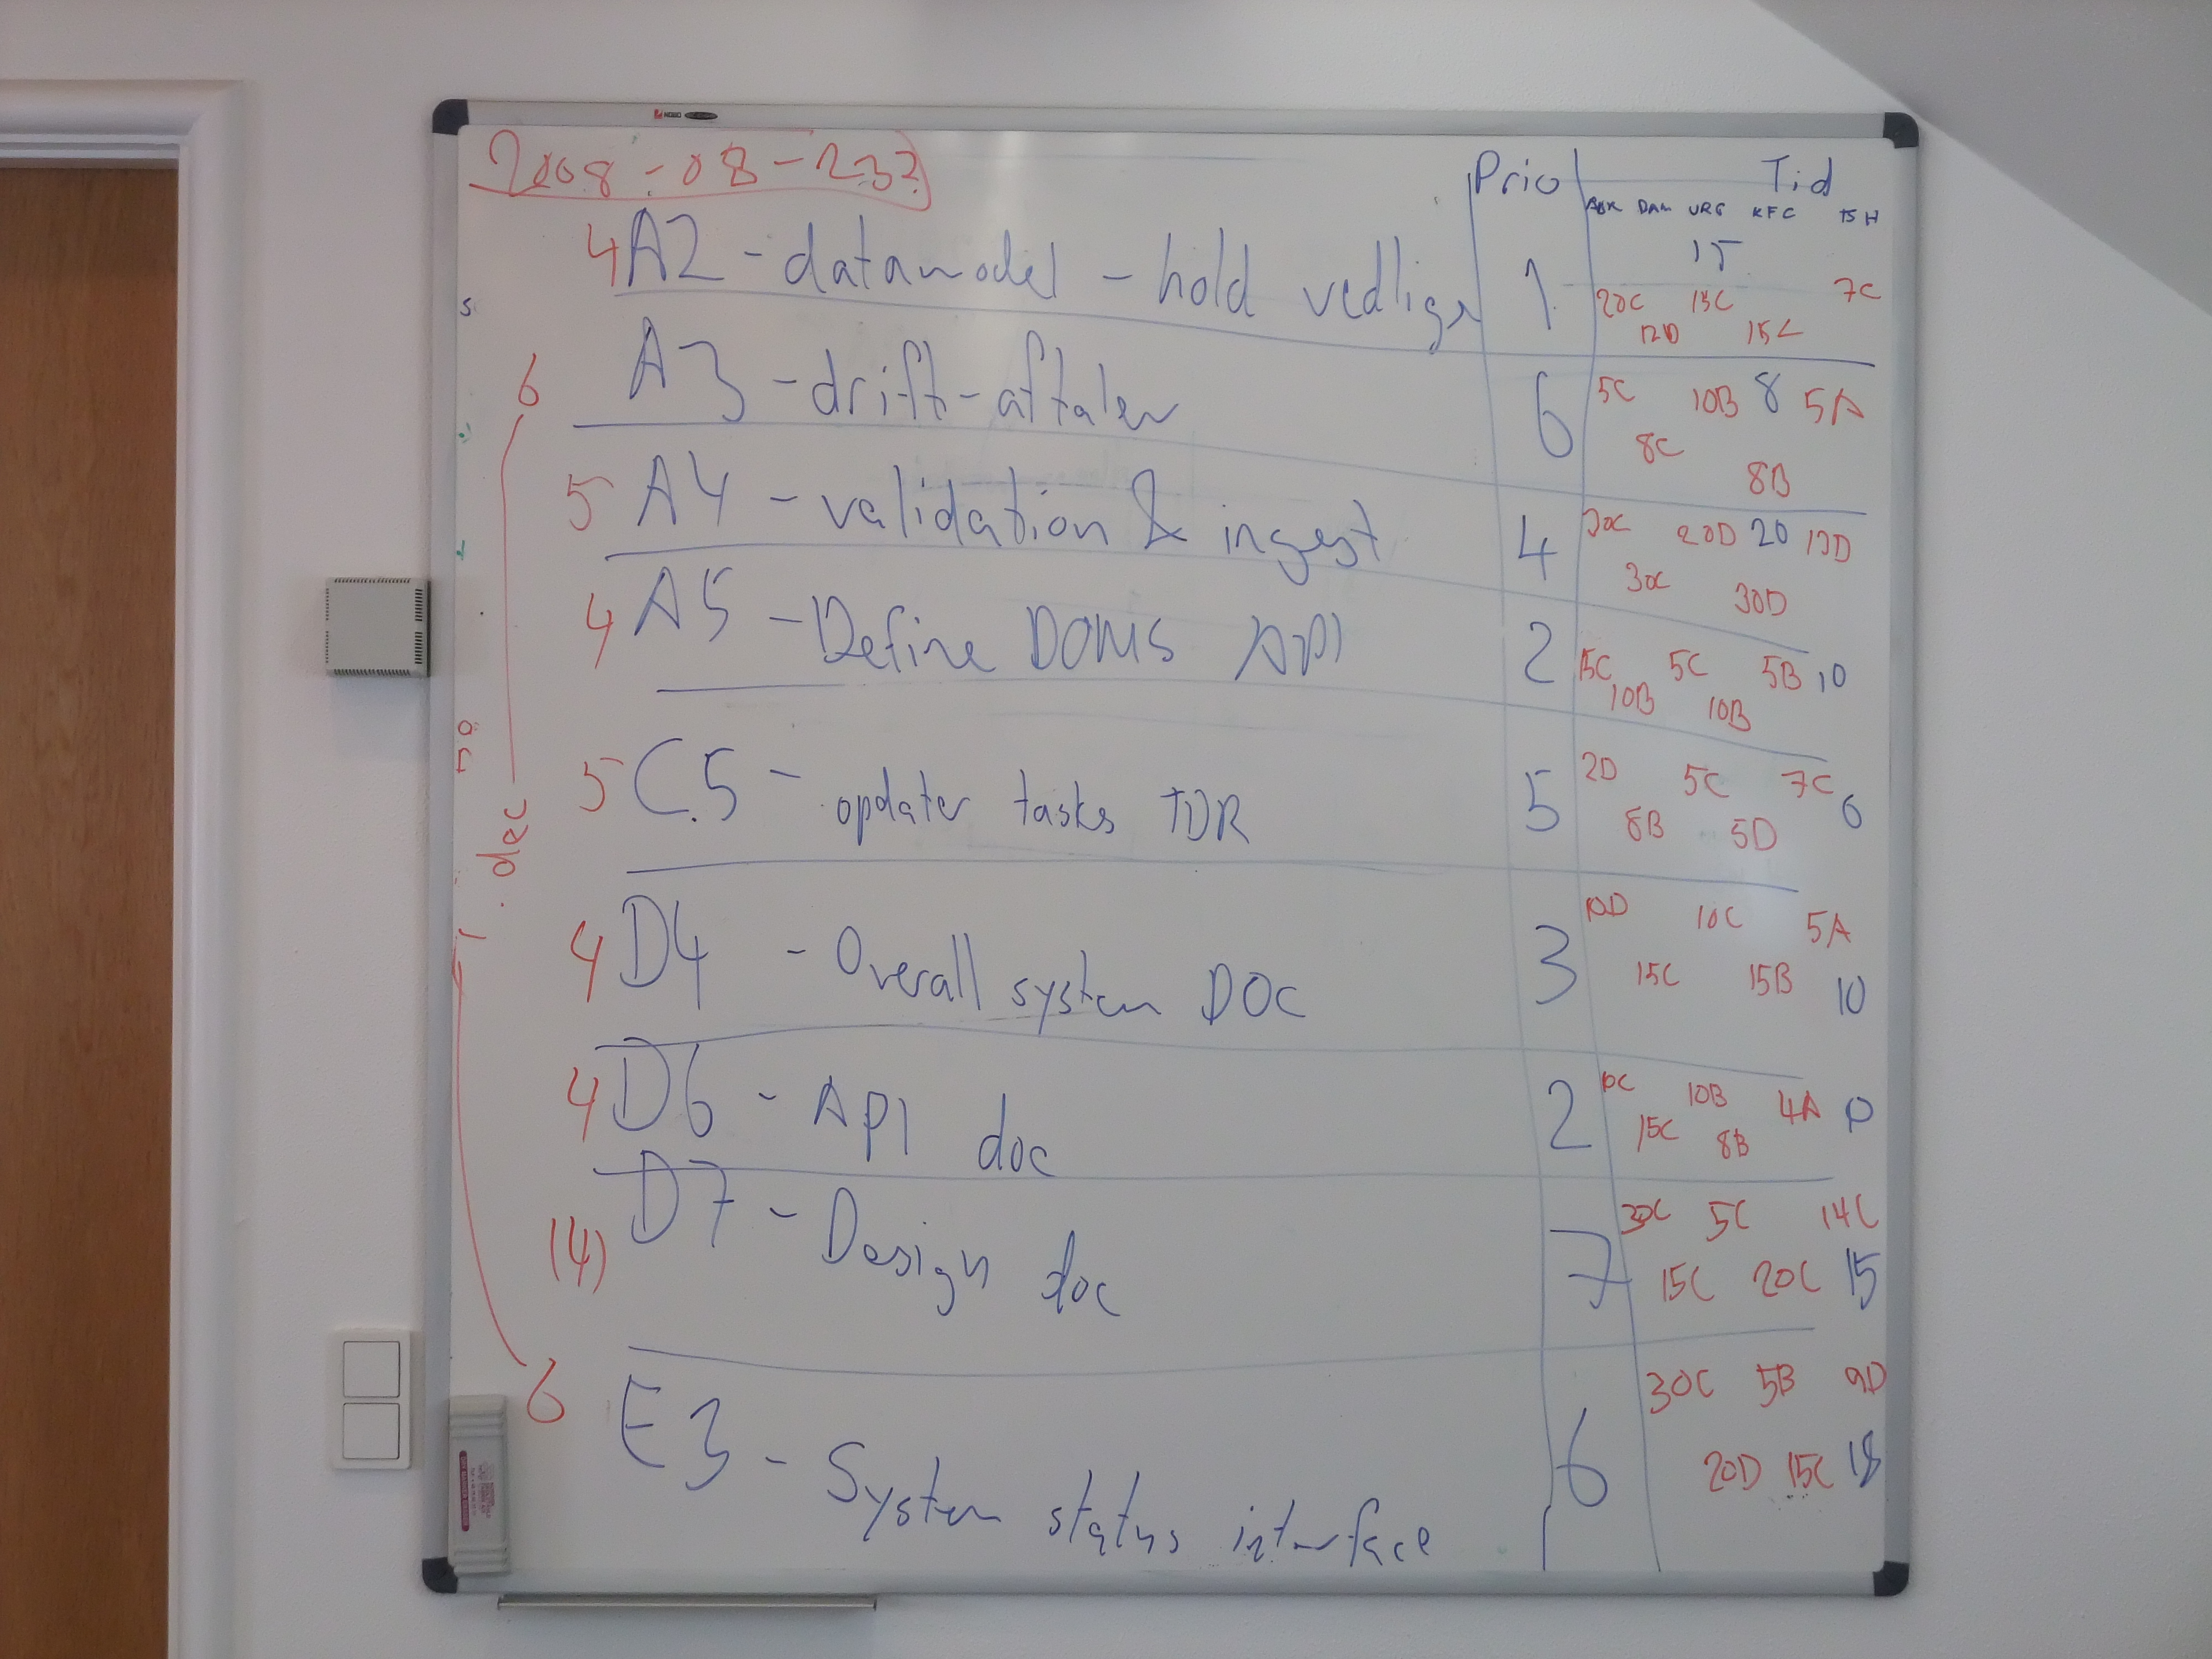 NOBO
2008-08-23?
Prio Tid
ABR DAM URG KFC TSH
4 A2 - datamodel - hold vedlige 1 15
20C 15C 7C
12D 15C
6 A3 - drift-aftaler 6 5C 10B 8 5A
8C
8B
5 A4 - validation & ingest 4 20D 20 13D
30C 30D
4 A5 - Define DOMS API 2 15C 5C 5B 10
10B 10B
5 C.5 - opdater tasks TDR 5 2D 5C 7C 6
8B 5D
1. dec
4 D4 - Overall system DOC 3 10D 10C 5A
15C 15B 10
4 D6 - API doc 2 10C 10B 4A
15C 8B
(4) D7 - Design doc 7 30C 5C 14C
15C 20C 15
6 E3 - System status interface 6 30C 5B 9D
20D 15C 18